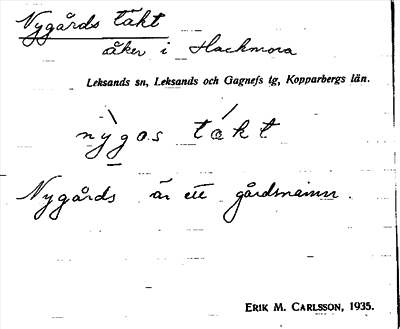 Nygårds täkt
åker i Hackmora
Leksands sn, Leksands och Gagnefs tg, Kopparbergs län.
nỳgas tákt
Nygårds är ett gårdsnamn.
ERIK M. CARLSSON, 1935.